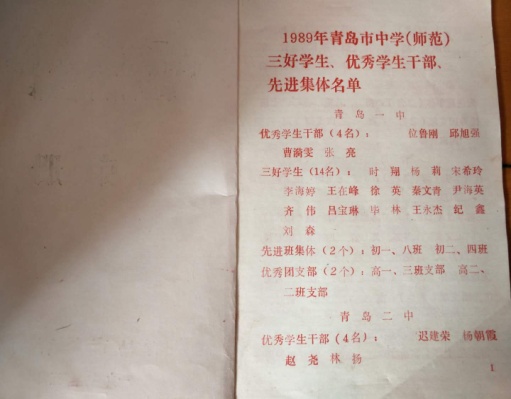 1989年青岛市中学(师范)
三好学生、优秀学生干部、
先进集体名单
青岛一中
优秀学生干部(4名): 位鲁刚 邱旭强
曹漪雯 张亮
三好学生(14名): 时翔 杨莉 宋希玲
李海婷 王在峰 徐英 秦文青 尹海英
齐伟 吕宝琳 毕林 王永杰 纪鑫
刘森
先进班集体(2个): 初一、八班 初二、四班
优秀团支部(2个): 高一、三班支部 高二、
二班支部
青岛二中
优秀学生干部(4名): 迟建荣 杨朝霞
赵尧 林扬
1